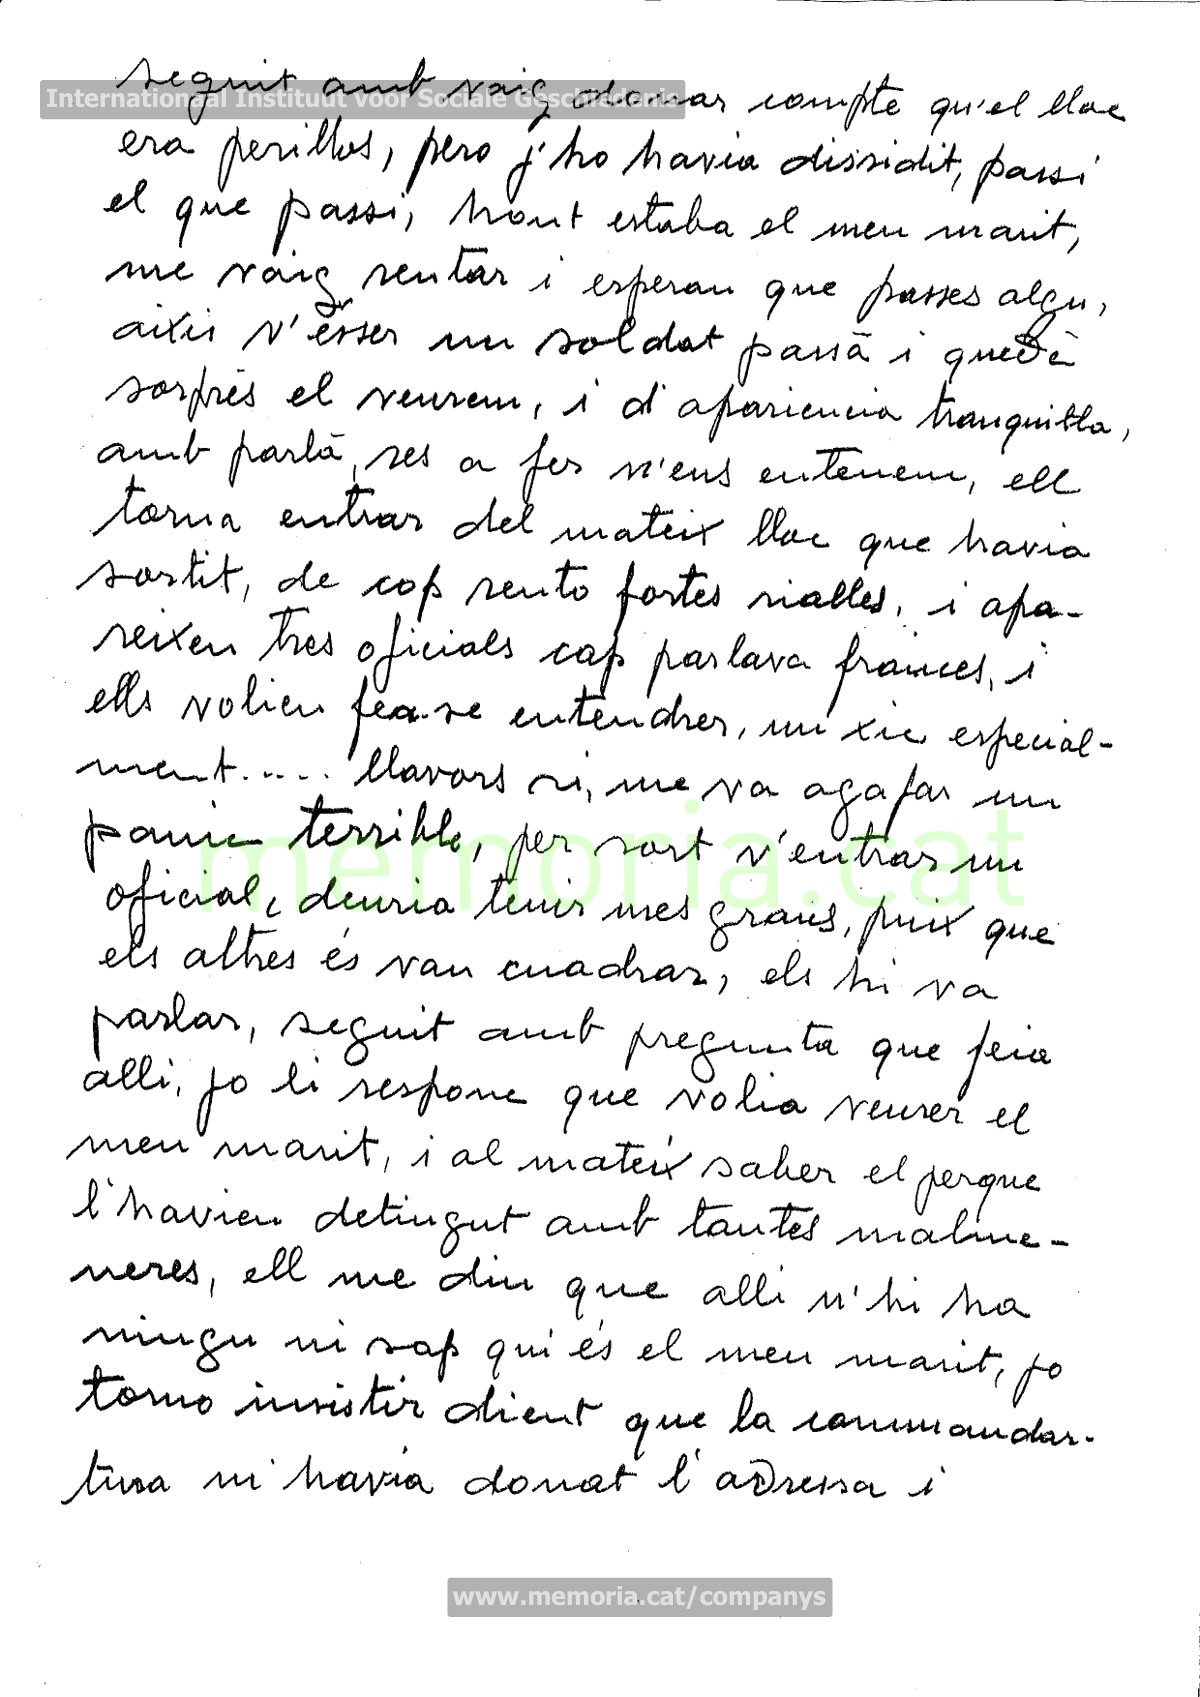 seguit amb vaig donar compte qu'el lloc
International Instituut voor Sociale Geschiedenis
era perillos, pero j'ho havia dissidit, passi
el que passi, hont estaba el meu marit,
me vaig sentar i esperan que passes algu,
aixis v'ésser un soldat passà i quedè
sorprès el veurem, i d'apariencia tranquilla,
amb parlà, res a fer n'ens entenem, ell
torna entrar del mateix lloc que havia
sortit, de cop sento fortes rialles, i apa-
reixen tres oficials cap parlava frances, i
ells volien fea-se entendrer, un xic especial-
ment..... llavors si, me va agafar un
panic terrible, per sort v'entrar un
memoria.cat
oficial, deuria tenir mes graus, puix que
els altres és van cuadrar, els hi va
parlar, seguit amb pregunta que feia
alli, jo li respone que volia veurer el
meu marit, i al mateix saber el perque
l'havien detingut amb tantes malme-
neres, ell me diu que alli n'hi ha
ningu ni sap qui és el meu marit, jo
torno insistir dient que la commandar-
tura m'havia donat l'adressa i
www.memoria.cat/companys